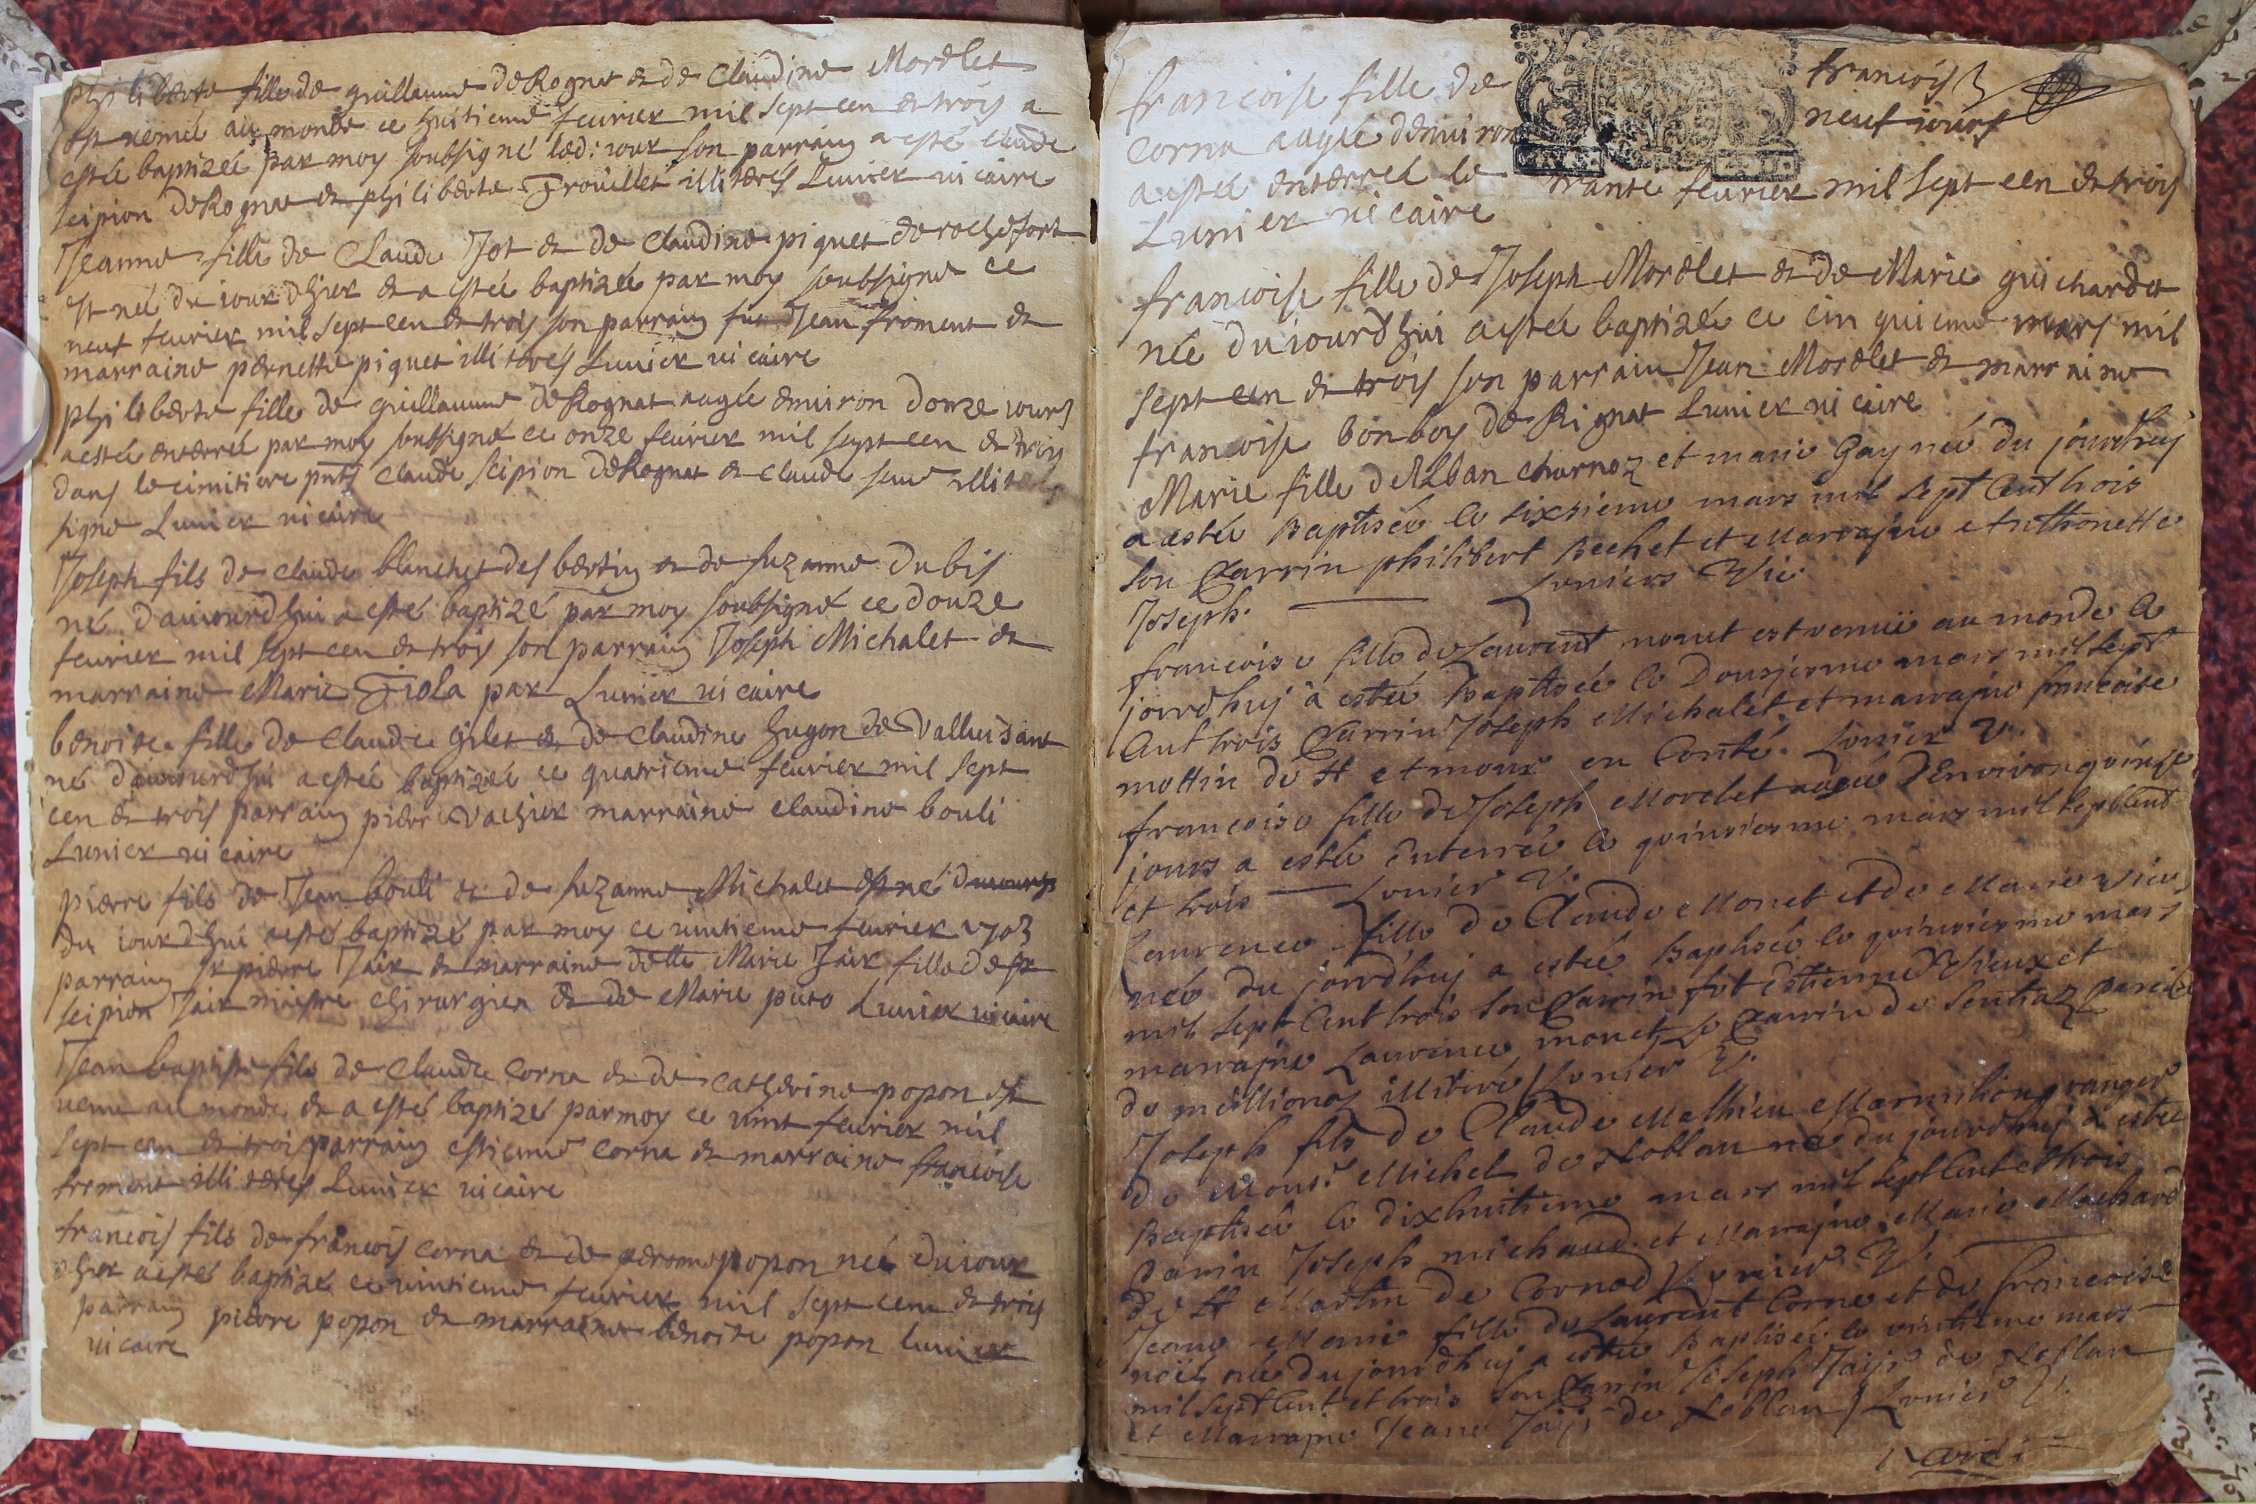 philiberte fille de guillaume deRognat et de Claudine Morelet
est venue au monde ce huitieme feurier mil sept cen et trois a
estée baptizée par moy soubsigné led: iour son parrain a esté claude
scipion deRognat et philiberte Trouillet illiterés Lunier uicaire
Jeanne fille de Claude Jot et de Claudine piquet de rochefort
est née du iour dhier et a estée baptizée par moy soubsigné ce
neuf feurier mil sept cen et trois son parrain fut Jean froment et
marraine pernette piquet illiterés Lunier uicaire
philiberte fille de guillaume deRognat aagée enuiron douze iours
a estée enterrée par moy soubsigné ce onze feurier mil sept cen et trois
dans le cimitiere pnts claude scipion deRognat et claude illiterés
signé Lunier uicaire
Joseph fils de claude blanchet des bertin et de suzanne Dubis
né d'auiourdhui a esté baptizé par moy soubsigné ce douze
feurier mil sept cen et trois son parrain Joseph Michalet et
marraine Marie Fiola par Lunier uicaire
benoite fille de Claude gilet et de Claudine hugon de Valluisant
né dauiourdhui a estée baptizée ce quatrieme feurier mil sept
cen et trois parrain pierre Vachier marraine claudine bouli
Lunier uicaire
pierre fils de Jean bouli et de suzanne Michalet est né
du iourdhui a esté baptizé par moy ce uintieme feurier 1703
parrain sr pierre Jaïr et marraine delle Marie Jaïr fille de sr
scipion Jaïr maistre chirurgien et de Marie puto Lunier uicaire
Jean baptiste fils de claude Corna et de catherine popon est
uenu au monde et a esté baptizé par moy ce uint feurier mil
sept cen et trois parrain estienne corna et marraine francoise
froment illiterés Lunier uicaire
francois fils de francois corna et de popon née du iour
dhier a esté baptizé ce uintieme feurier mil sept cen et trois
parrain pierre popon et marraine benoite popon Lunier
uicaire
francoise fille de francois
corna aagée denuiron neuf iours
a estée enterrée le trante feurier mil sept cen et trois
Lunier uicaire
francoise fille de Joseph Morelet et de Marie guichardet
née du iourdhui a estée baptizée ce cinquieme mars mil
sept cen et trois son parrain Jean Morelet et marraine
francoise bonboy de Rignat Lunier uicaire
Marie fille dAlban Charnoz et marie Gay née du jourdhuj
a estée Baptisée le sixsieme mars mil sept Cent trois
son Parrin philibert Bechet et Marrajne Anthonette
Joseph. Luniers Vic
francoise fille de Laurent monet est venuë au monde le
jourdhuj a estée Baptisée le Dousiesme mars mil sept
Cent trois Parrin Joseph Michalet et marrajne francoise
mottin de St et mour en Conté. Lunier V.
francoise fille de Joseph Morelet aagée D'Environ quinse
jours a estée Enterrée le quinsiesme mars mil sept Cent
et trois Lunier V.
Laurence fille de Claude Monet et de Marie vieux
née du jourdhuj a estée Baptisée le quinsiesme mars
mil sept Cent trois son Parrin fut Estienne Vieux et
marrajne Laurence monet, Le Parrin de
de meillionas illitéré Lunier V.
Joseph fils de Claude Mathieu Marmilion granger
de Monsr Michel de Noblan né du jourdhuj a estée
Baptisée le dixhuitieme mars mil sept Cent et trois
Parrin Joseph michaud et Marrajne Marie Machard
de St Martin de Cornod Lunier V.
Jeane Marie fille de Laurent Corna et de francoise
noël née du jourdhuj a estée Baptisée le vintieme mars
mil sept Cent et trois son Parrin Joseph Jaijr de Noblan
et Marrajne Jeane Jaijr de Noblan Lunier V.